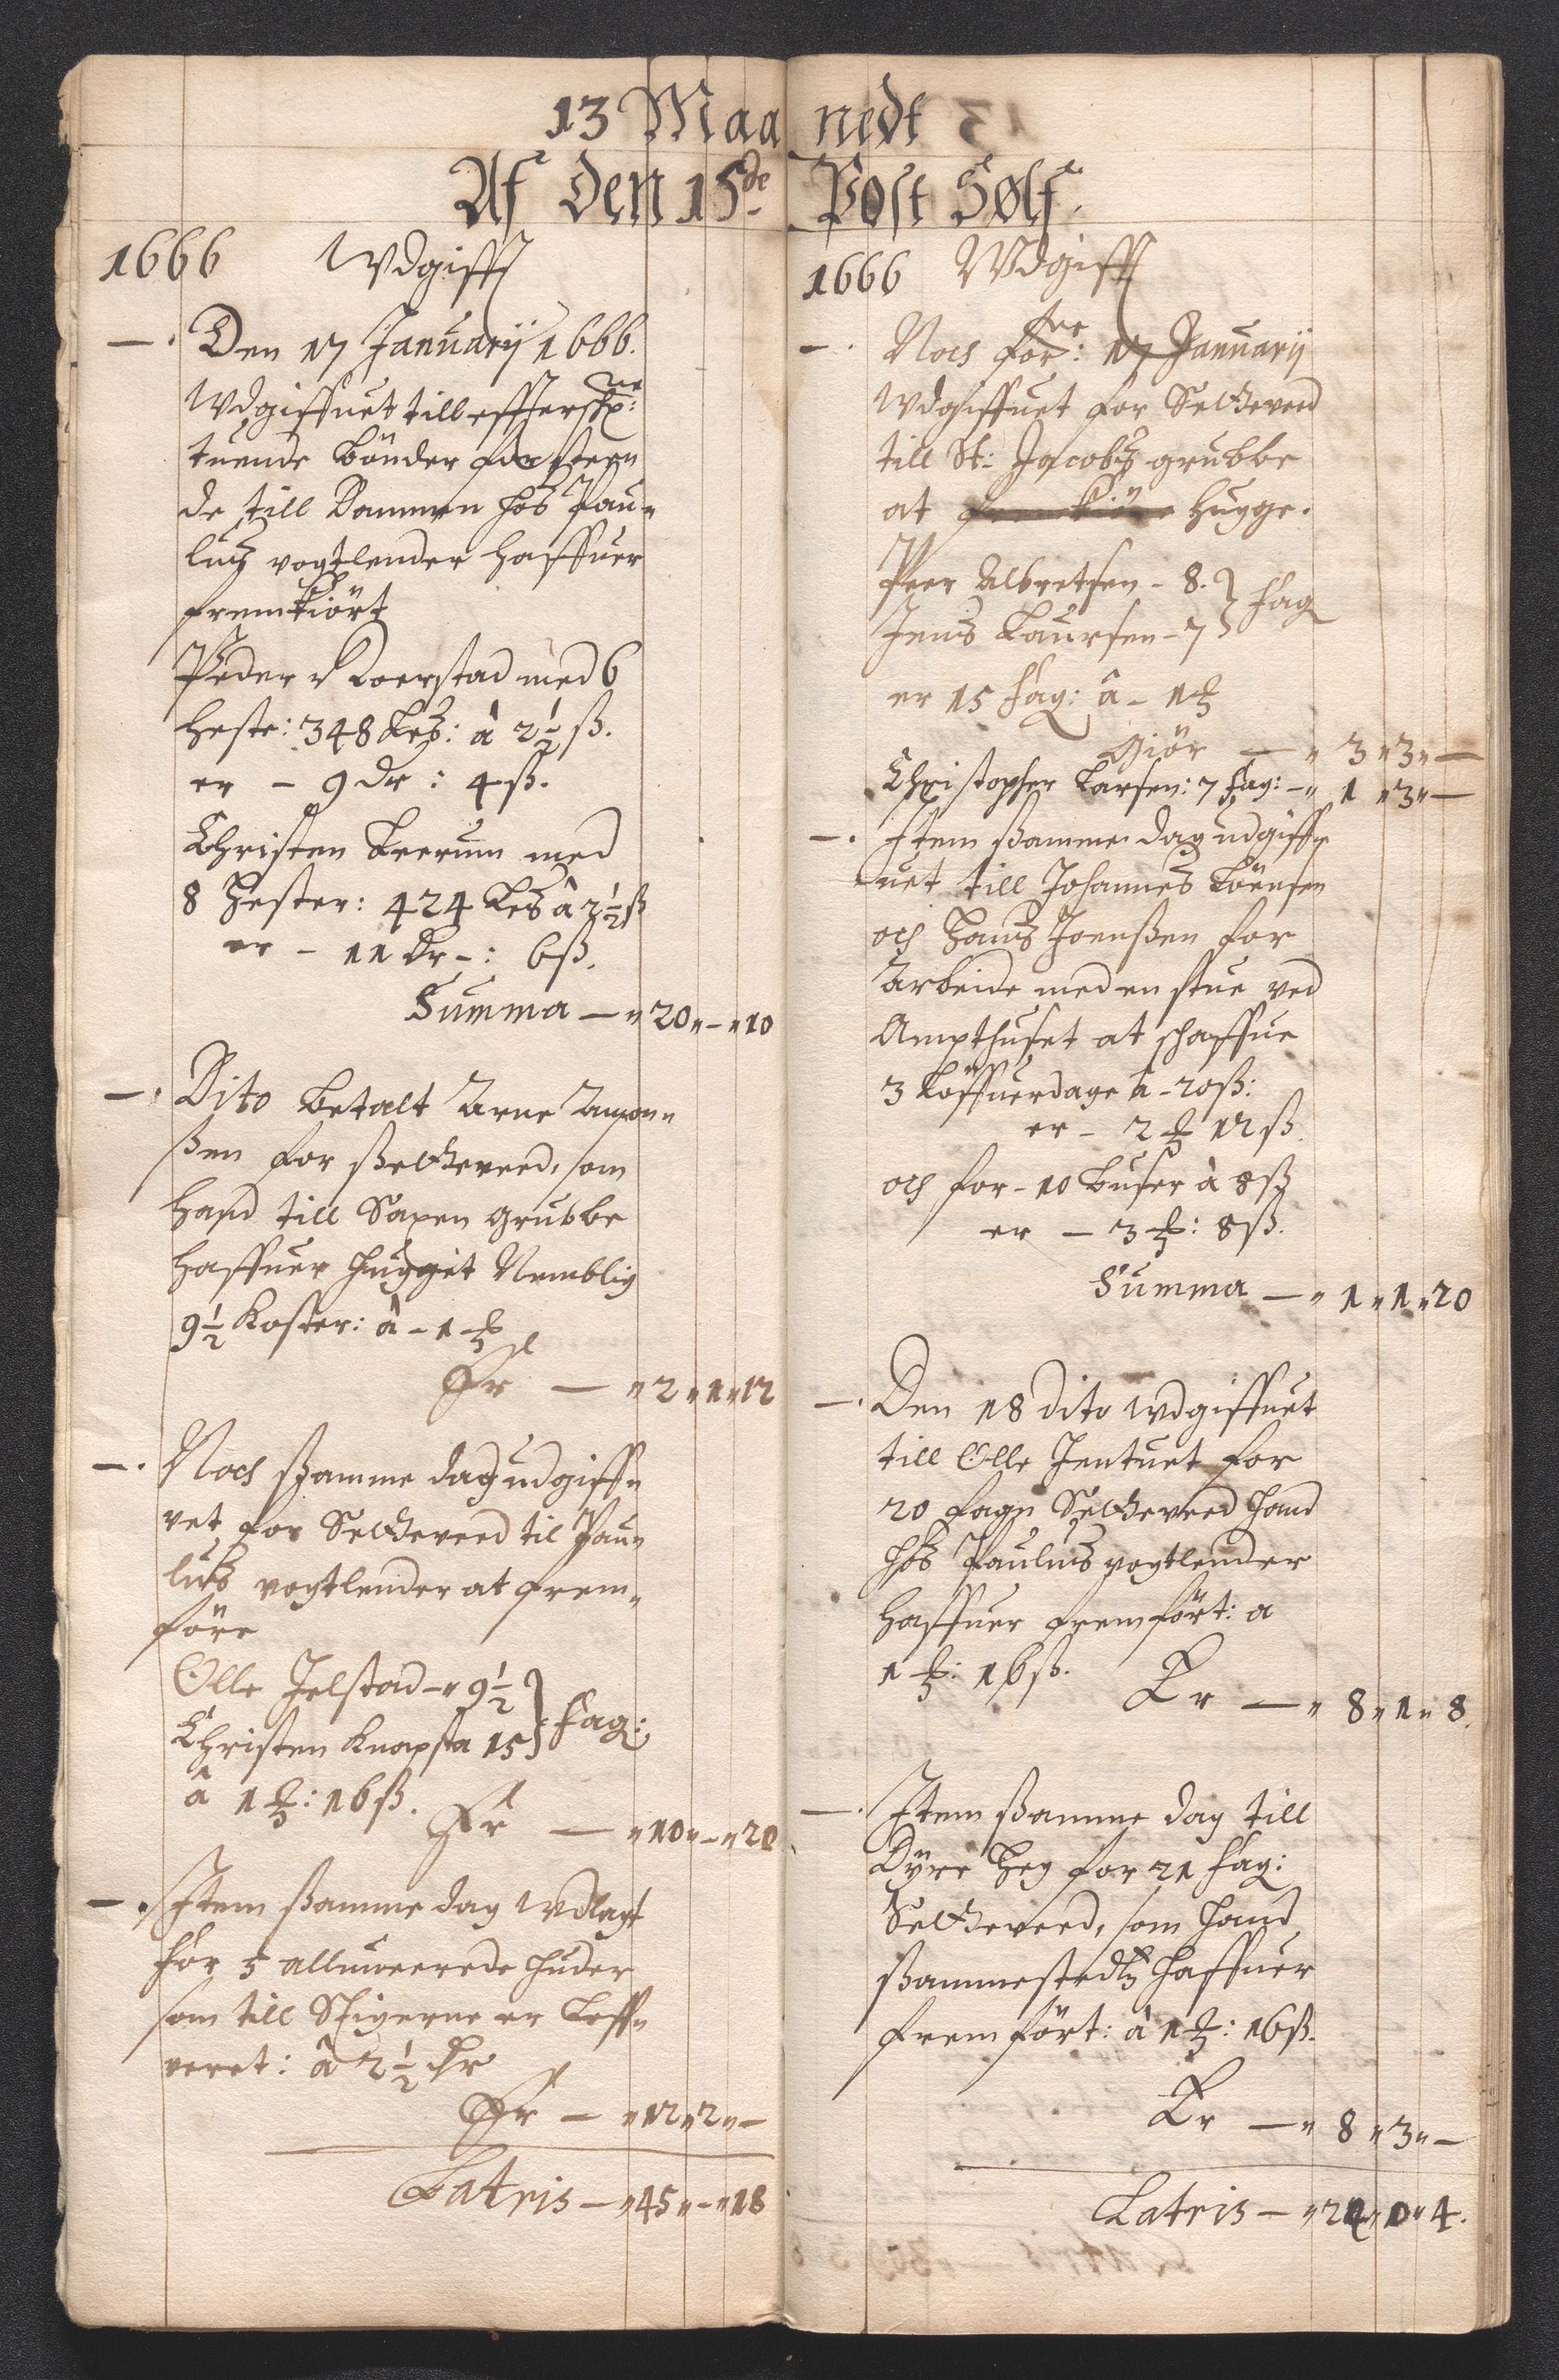 13 Maanedt
Af Den 15de Post Sølf.
1666 Wdgifft
Den 17 Januarij 1666.
Wdgiffuet till effterschr:ne
tuende bönder for steen
de till Dammen hos Pau„
luz vogtlender haffuer
fremkiört
Peder Koerstad med 6
heste: 348 Les: à 2½ ß.
er – 9 dr: 4 ß.
Christen Leerum med
8 Hester: 424 Les à 2½ ß
er – 11 Dr –: 6 ß.
Summa — „ 20 „ – „ 10
Dito betalt Arne Amon„
ßen for ßetteveed, som
hand till Saxen grubbe
haffuer hugget Nemblig
9½ Koster: à – 1 ℥
Er — „ 2 „ 1 „ 12
Noch ßamme dag udgiff„
vet for Setteveed til Pau„
lus vogtlender at frem„
före
Olle Jelstad – „ 9½
Christen Knapsta 15 } fag:
à 1 ℥: 16 ß.
Er — „ 10 „ – „ 20
Item ßamme dag Wdlagt
for 5 alluweerede huder
som till Stigerne er Leff„
veret: à 2½ dr
Er — „ 12 „ 2 „ —
Latris — „ 45 „ – „ 18
1666 Wdgifft
Noch for:ne 17 Januarij
Wdgiffuet for Setteveed
till St: Jacobs grubbe
at hugge.
Peer Albretsen – 8.
Jens Laursen – 7 } fag
er 15 fag: à – 1 ℥
Giör — „ 3 „ 3 „ —
Christopher Larsen: 7 fag: – „ 1 „ 3 „ —
Item ßamme dag udgiff„
uet till Johannes Törensen
och Hans Joenßen for
Arbeide med en stue ved
Ampthuset at schaffue
3 Löffuerdage à – 20 ß:
er – 2 ℥ 12 ß.
och for – 10 Buser à 8 ß
er – 3 ℥: 8 ß.
Summa — „ 1 „ 1 „ 20
Den 18 dito Wdgiffuet
till Olle Jentuet for
20 fagn Setteveed hand
hos Paulus vogtlender
haffuer fremfört: a
1 ℥: 16 ß. Er — „ 8 „ 1 „ 8.
Item ßamme dag till
Dyre Heg for 21 fag:
Setteveed, som hand
ßammestedtz haffuer
frem fört: à 1 ℥: 16 ß.
Er — „ 8 „ 3 „ —
Latris — „ 24 „ 0 „ 4.